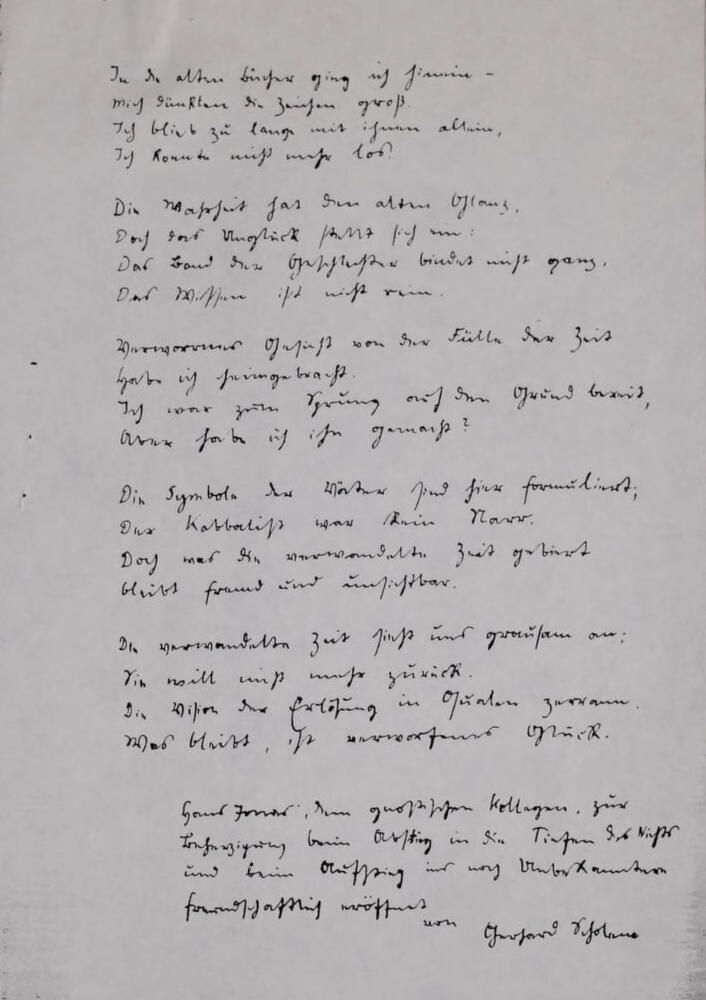 In die alten Bücher ging ich hinein –
mich dünkten die Zeichen groß.
Ich blieb zu lange mit ihnen allein,
Ich konnte nicht mehr los.
Die Wahrheit hat den alten Glanz,
Doch das Unglück stellt sich ein:
Das Band der Geschlechter bindet nicht ganz,
Das Wissen ist nicht rein.
Verworrenes Gesicht von der Fülle der Zeit
Habe ich heimgebracht.
Ich war zum Sprung auf den Grund bereit,
Aber habe ich ihn gemacht?
Die Symbole der Väter sind hier formuliert;
Der Kabbalist war kein Narr.
Doch was die verwandelte Zeit gebiert
bleibt fremd und unsichtbar.
Die verwandelte Zeit sieht uns grausam an;
Sie will nicht mehr zurück.
Die Vision der Erlösung in Qualen zerrann.
Was bleibt, ist verworfenes Glück.
Hans Jonas, dem gnostischen Kollegen, zur
Beherzigung beim Abstieg in die Tiefen des Nichts
und beim Aufstieg ins noch Unbekanntere
freundschaftlich eröffnet
von Gerhard Scholem